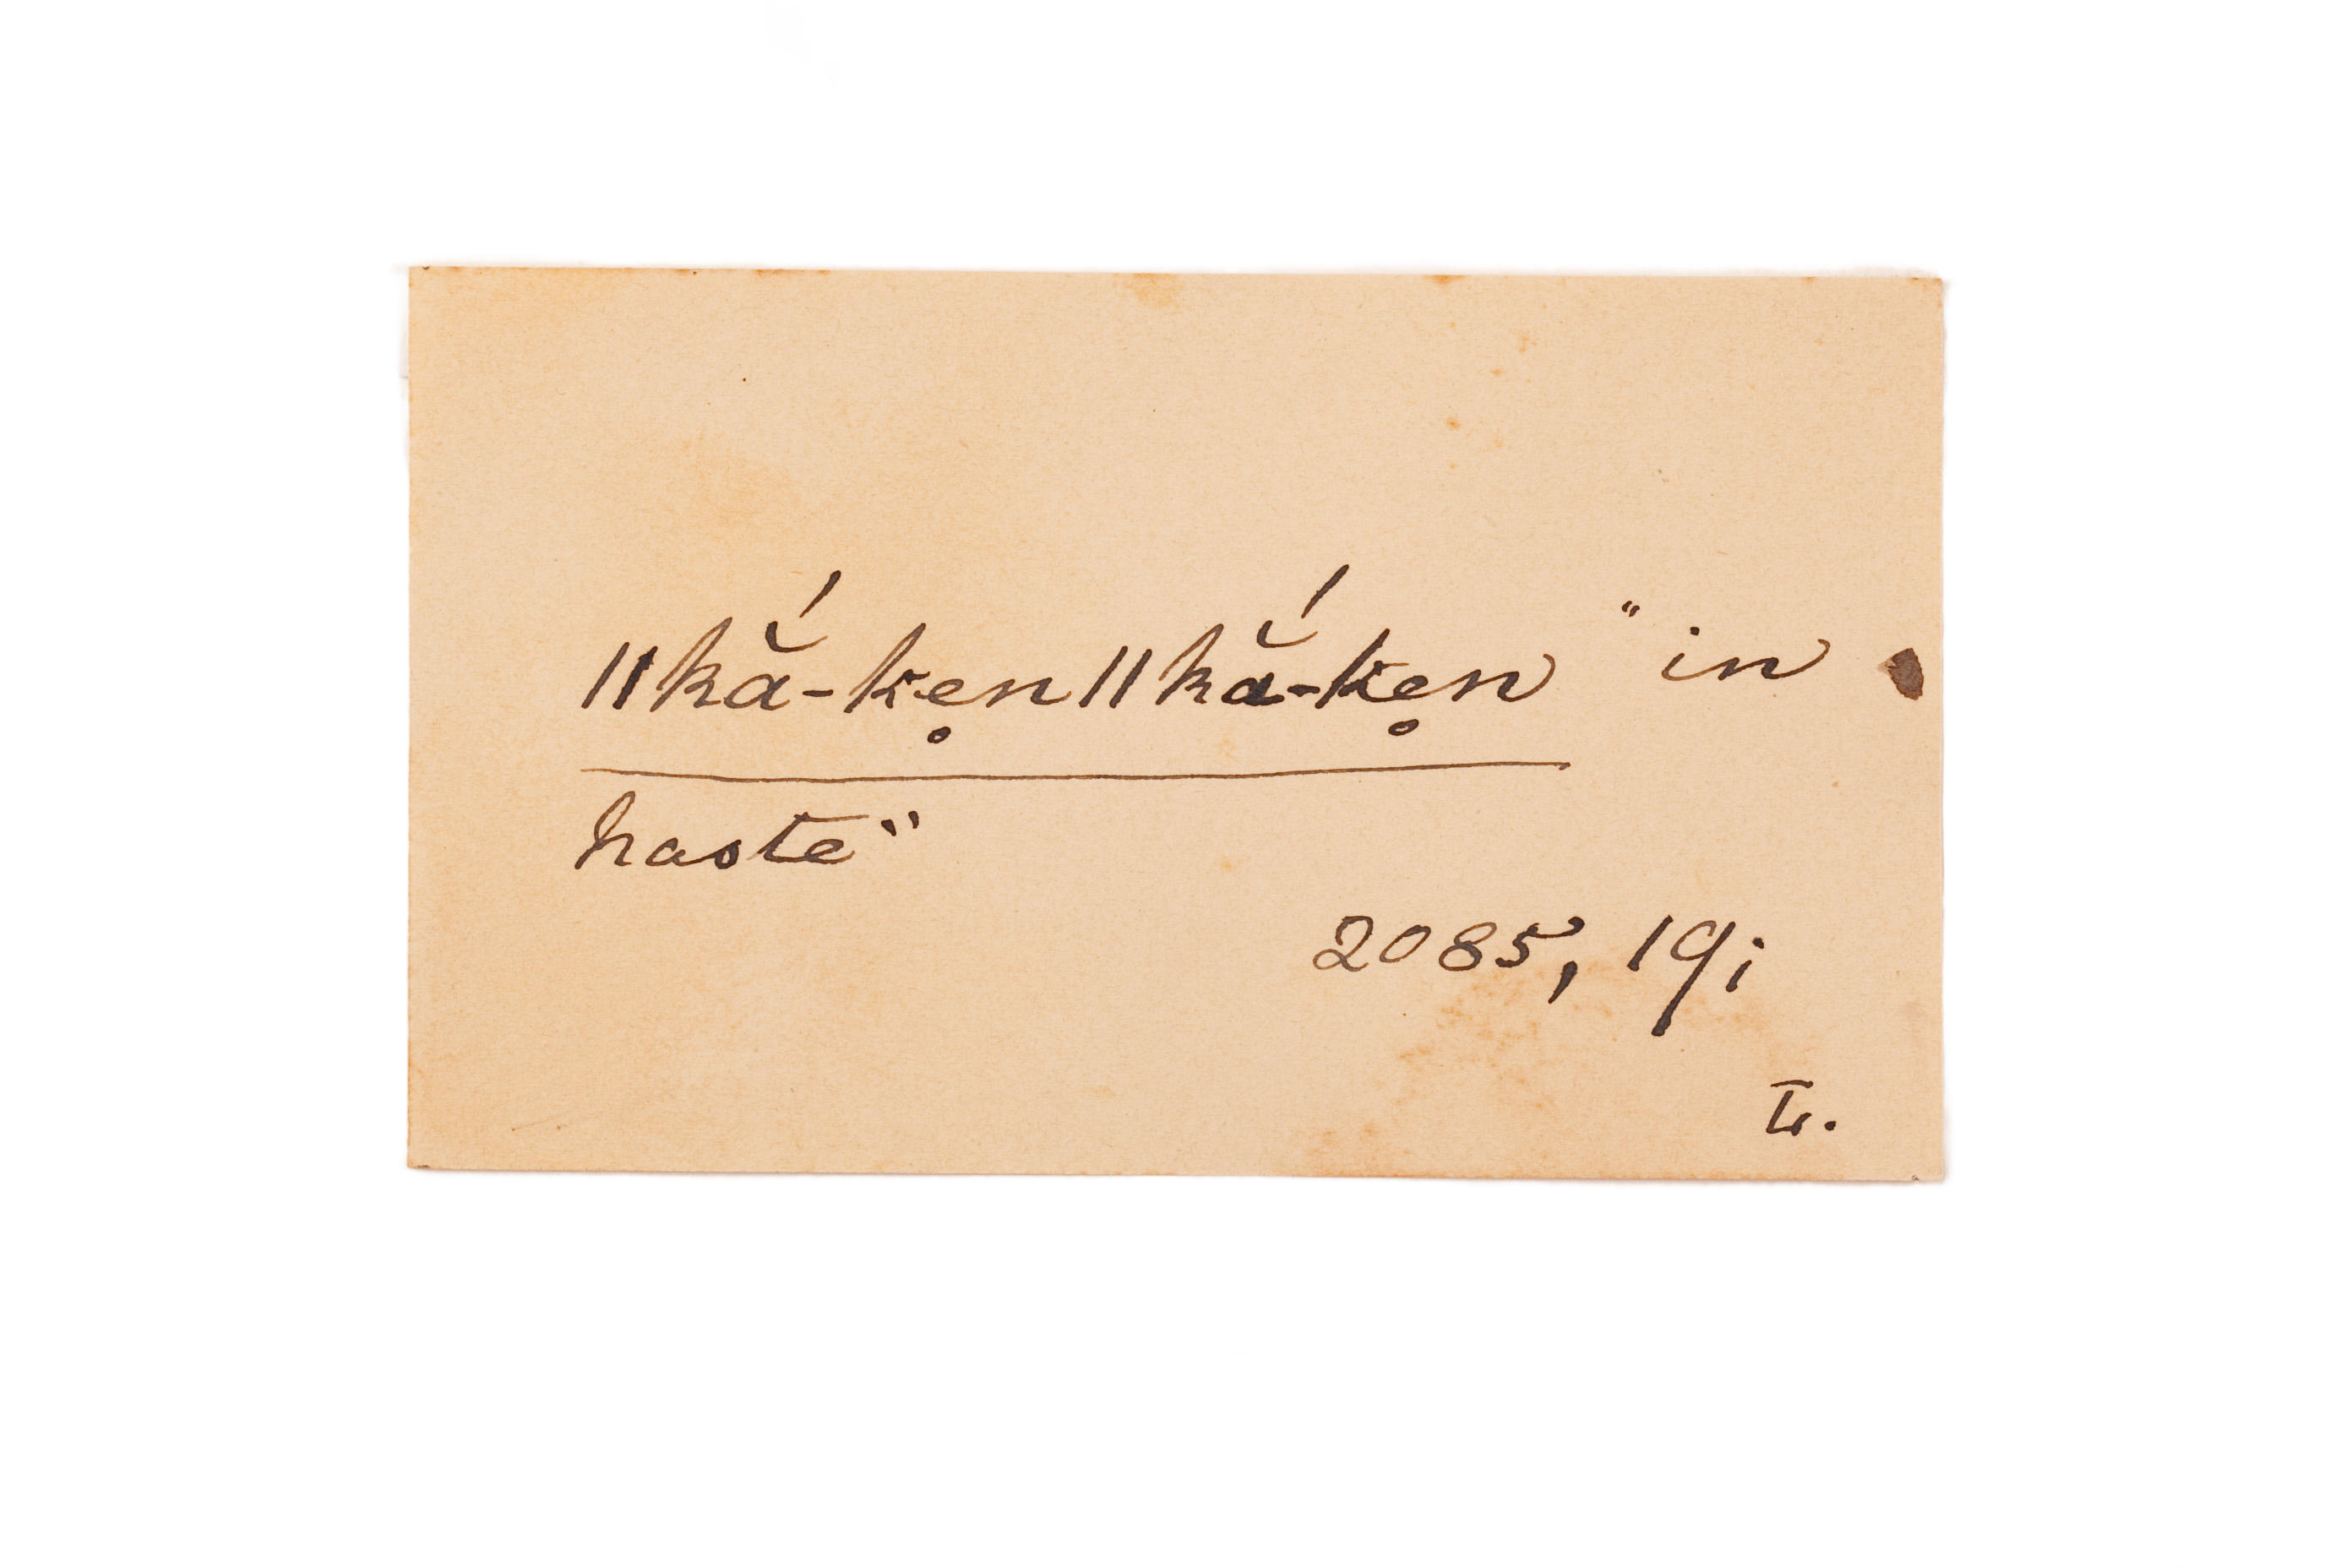 ǁkắ-ke̥nǁkắ-ke̥n "in
haste"
2085, 19;
L.